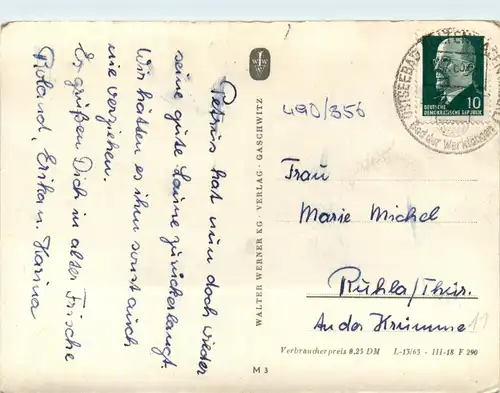 Petrus hat nun doch wieder
seine gute Laune zurückerlangt.
Wir hätten es ihm sonst auch
nie verziehen.
Es grüßen Dich in alter Frische
Roland, Erika u. Karina
WALTER WERNER KG · VERLAG · GASCHWITZ
490/356
10
DEUTSCHE
DEMOKRATISCHE REPUBLIK
OSTSEEBAD
Bad der Werktätigen
Frau
Marie Michel
Ruhla/Thür.
An der Krümme 11
Verbraucherpreis 0,25 DM L-15/63 · III-18 F 290
M 3